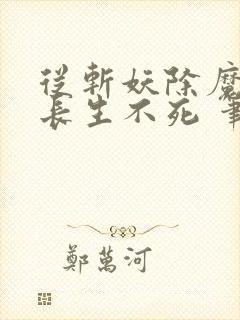 從斬妖除魔
長生不死 筆
鄭萬河